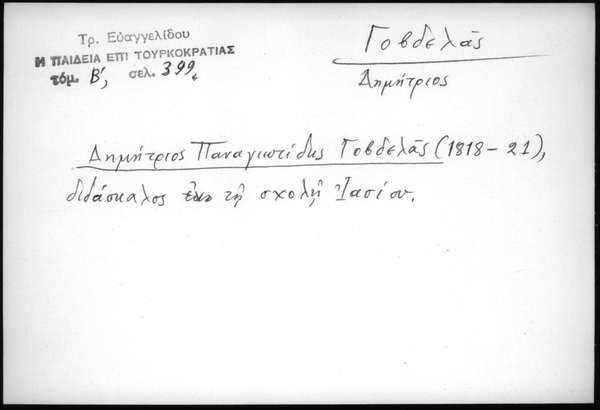 Τρ. Εὐαγγελίδου
Η ΠΑΙΔΕΙΑ ΕΠΙ ΤΟΥΡΚΟΚΡΑΤΙΑΣ
τόμ. Β', σελ. 399.
Γοβδελᾶς
Δημήτριος
Δημήτριος Παναγιωτίδης Γοβδελᾶς (1818-21),
διδάσκαλος τῇ σχολῇ Ἰασίου.